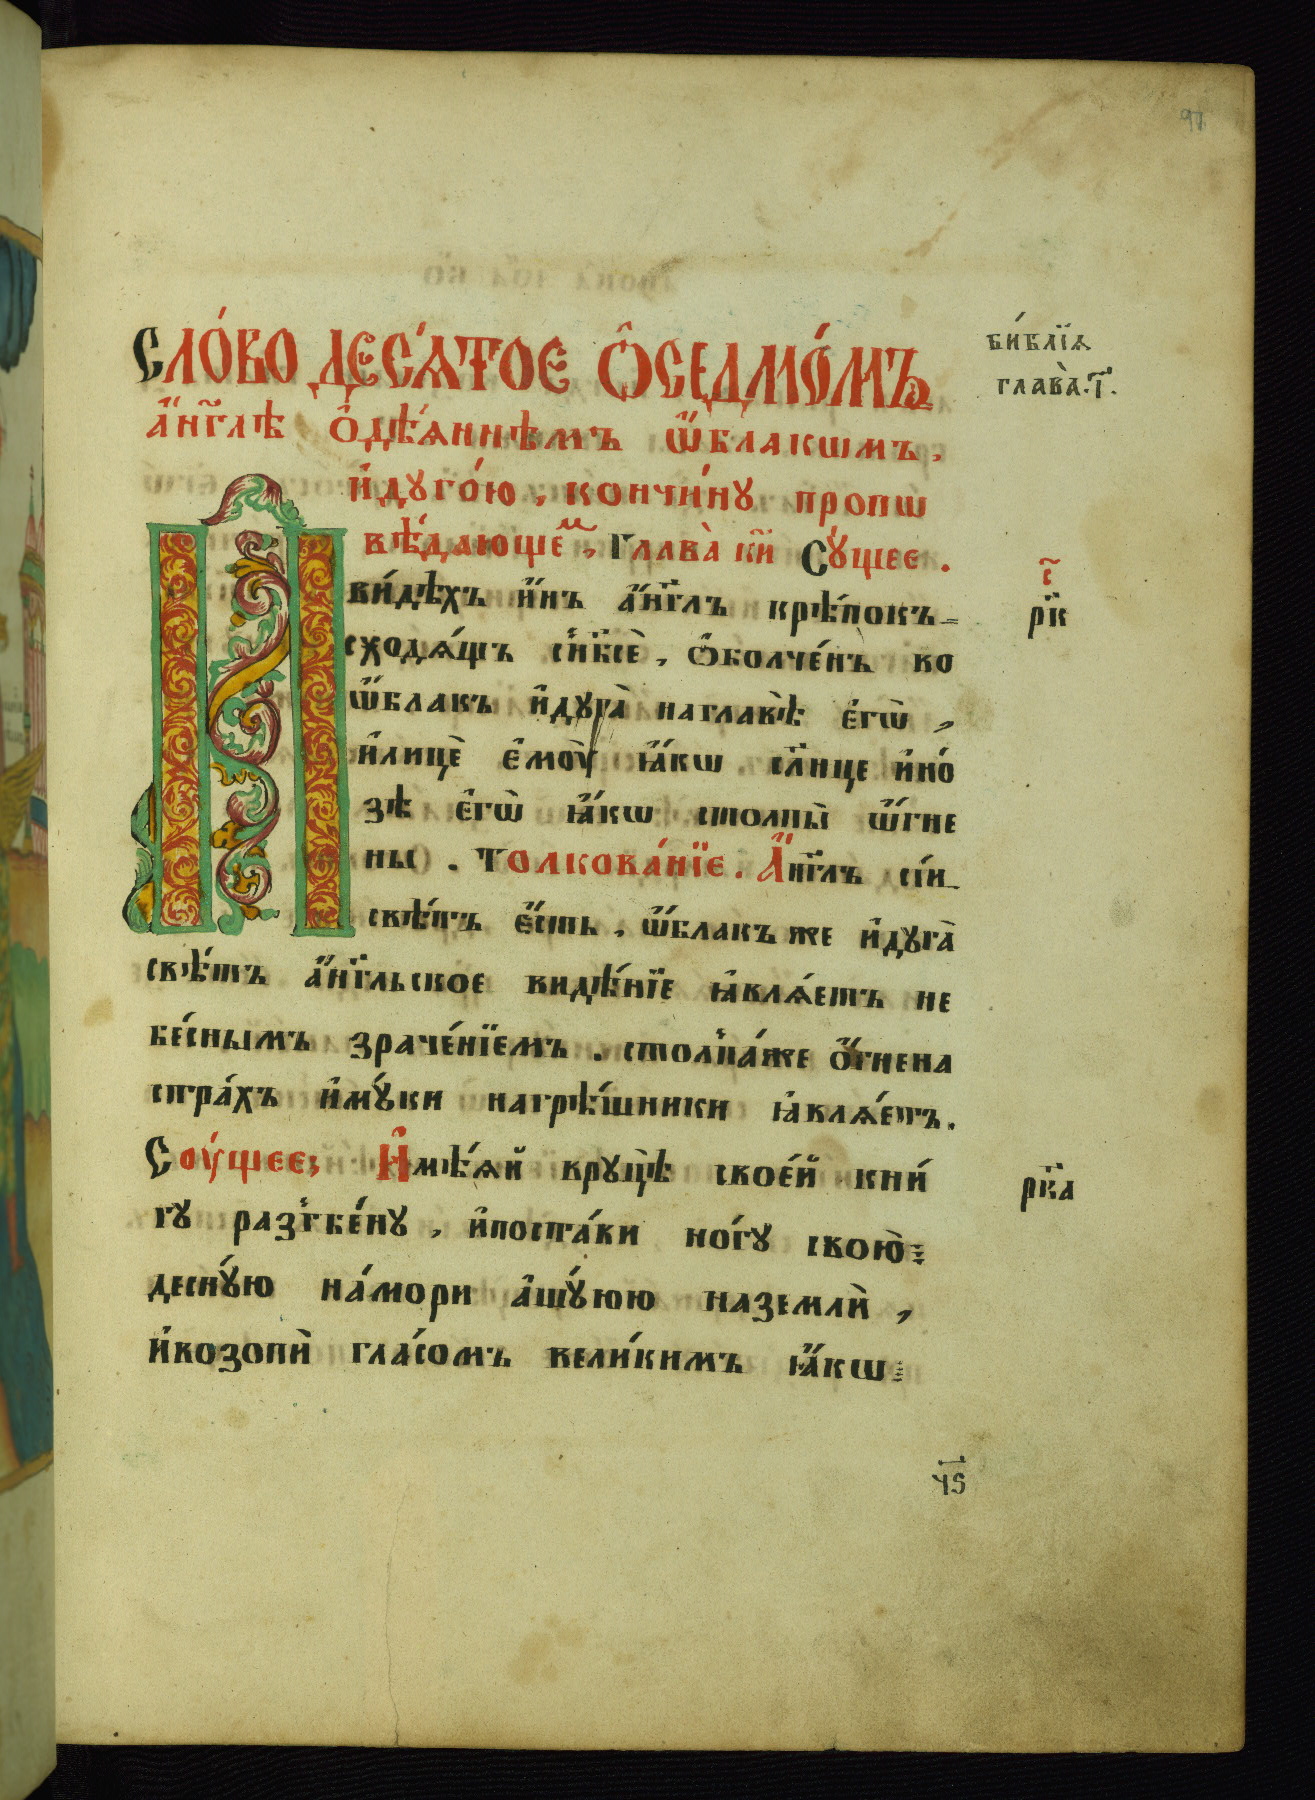 97
СЛО́ВО ДЕСѦ́ТОЕ Ѽ СЕДМО́МЪ
а҆́нг҃лѣ ѻ҆дѣ́ѧннѣмъ ѡ҆́блакѡмъ,
и҆ дуго́ю, кончи́ну пропѡ
вѣ́дающеⷨ, Глава̀ к҃и Сꙋ́щее.
видѣхъ и҆́нъ а҆́нг҃лъ крѣ́покъ
сходѧ́щъ с̾нб҃сѐ, ѡ҆болче́нъ во
ѡ҆́блакъ и҆ дуга̀ на главѣ̀ є҆гѡ̀,
и҆ лицѐ є҆моу̀ ꙗ҆́кѡ сл҃нце и҆ но́
зѣ є҆гѡ̀ ꙗ҆́кѡ столпы̀ ѡ҆́гне
ны. Толкова́нїе. А҆́нг҃лъ сі́и
свѣ́тъ є҆́сть, ѡ҆́блакъ же и҆ дуга̀
свѣ́тъ а҆́нг҃льское видѣ́нїе ꙗ҆влѧ́етъ не
бе́снымъ зраче́нїемъ. столпа́же ѻ҆́гнена
стра́хъ и҆ мꙋ́ки на грѣ́шники ꙗ҆влѧ́етъ.
Соу́щее; И҆мѣ́ѧй вруцѣ̀ свое́й кни́
гу разгбе́ну, и҆ поста́ви но́гу свою̀
деснꙋ́ю на́ мори а҆ шꙋ́юю на землѝ,
и҆ возопѝ гла́сомъ вели́кимъ ꙗ҆́кѡ
би́блїѧ
глава̀. і҃.
с҃
рк҃
рк҃а
ч҃ѕ